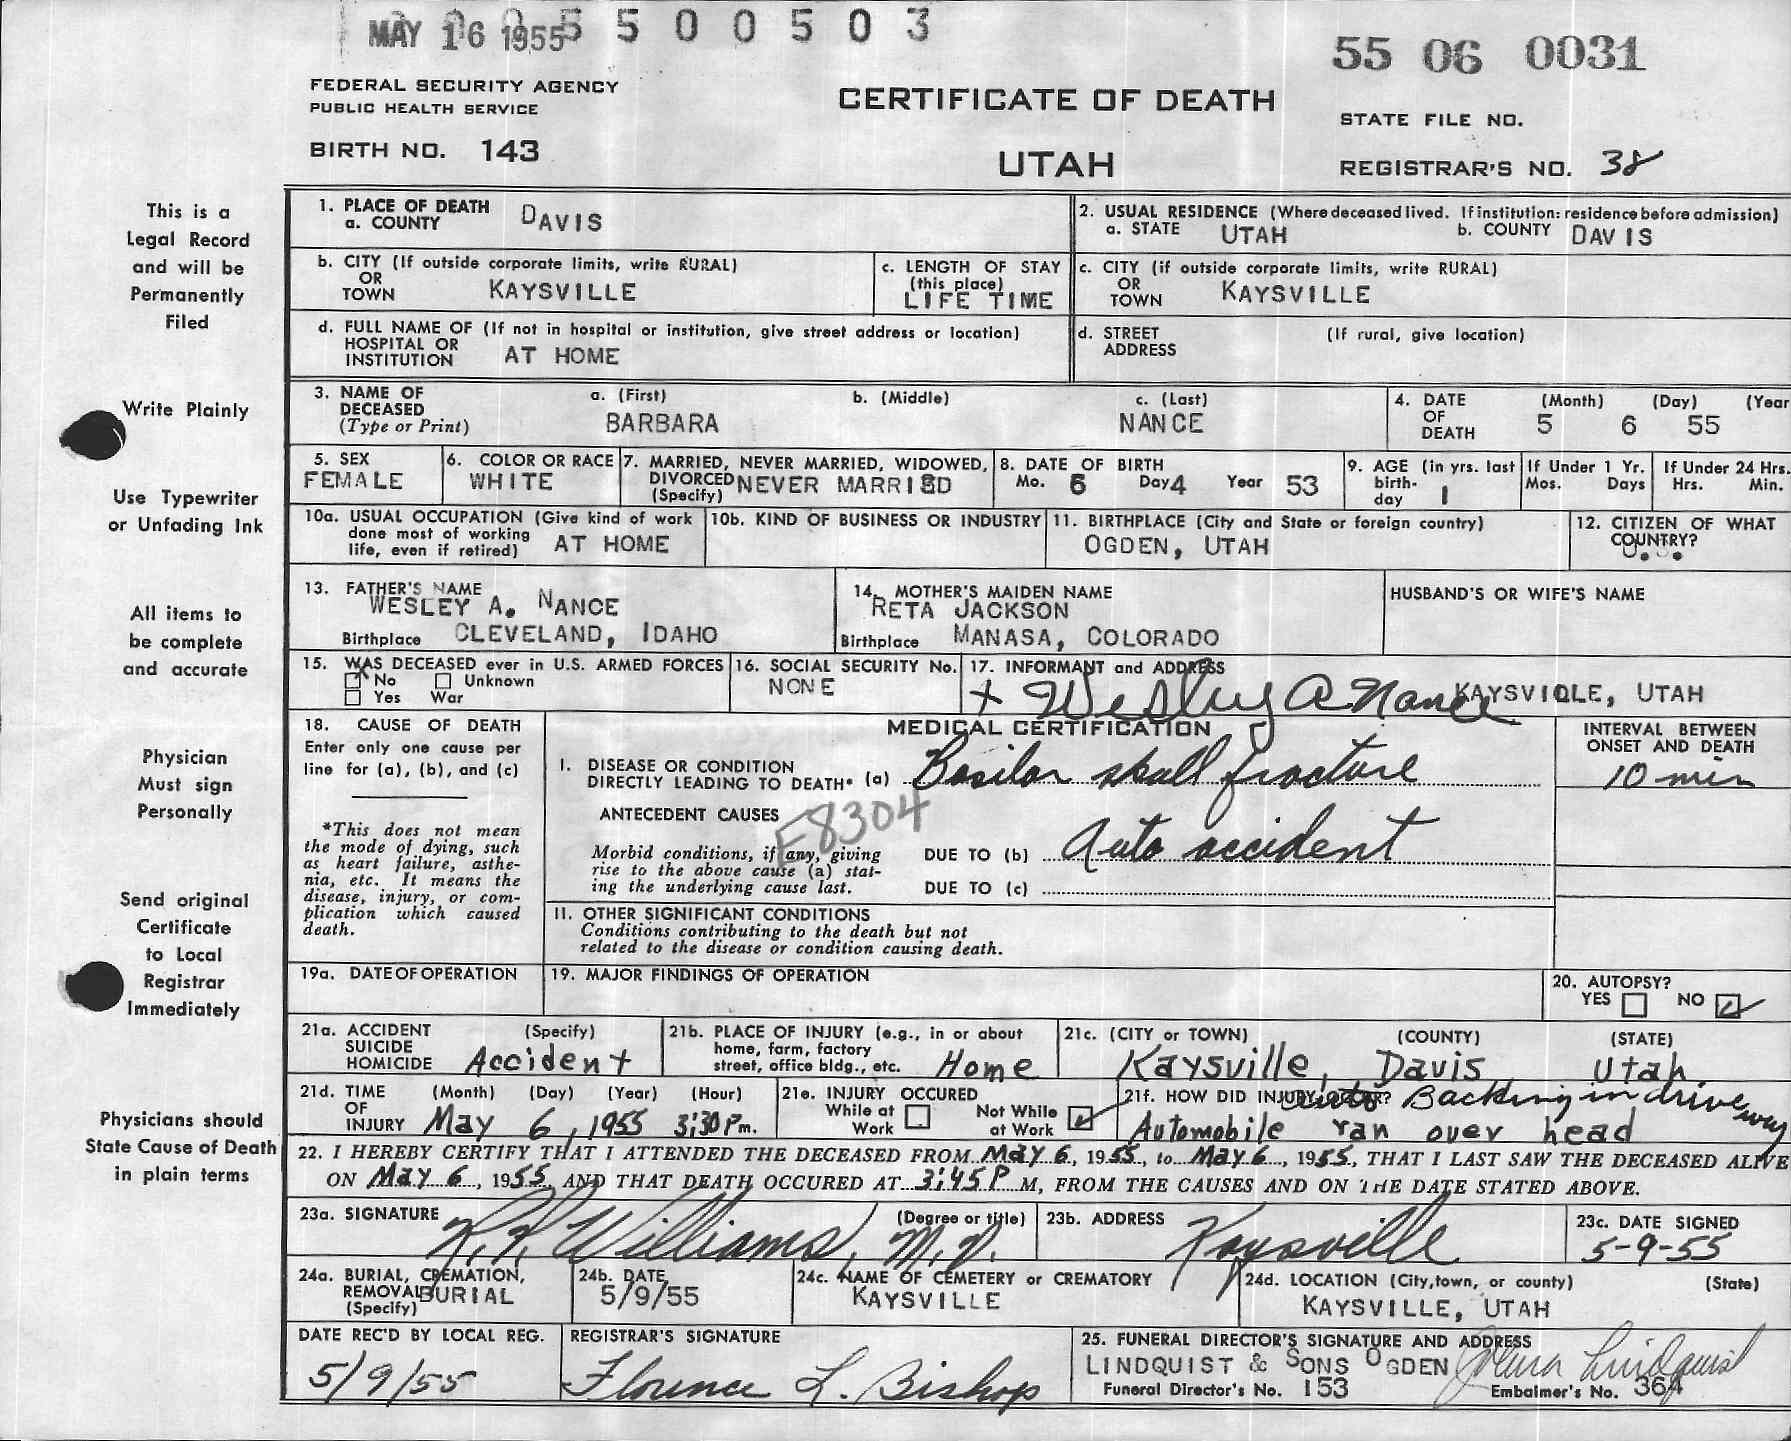 MAY 16 1955 5 5 0 0 5 0 3
55 06 0031
FEDERAL SECURITY AGENCY
PUBLIC HEALTH SERVICE
BIRTH NO. 143
CERTIFICATE OF DEATH
UTAH
STATE FILE NO.
REGISTRAR'S NO. 38
This is a
Legal Record
and will be
Permanently
Filed
Write Plainly
Use Typewriter
or Unfading Ink
All items to
be complete
and accurate
Physician
Must sign
Personally
Send original
Certificate
to Local
Registrar
Immediately
Physicians should
State Cause of Death
in plain terms
1. PLACE OF DEATH
a. COUNTY DAVIS
2. USUAL RESIDENCE (Where deceased lived. If institution: residence before admission)
a. STATE UTAH b. COUNTY DAVIS
b. CITY (If outside corporate limits, write RURAL)
OR
TOWN KAYSVILLE
c. LENGTH OF STAY
(this place)
LIFE TIME
c. CITY (if outside corporate limits, write RURAL)
OR
TOWN KAYSVILLE
d. FULL NAME OF (If not in hospital or institution, give street address or location)
HOSPITAL OR
INSTITUTION AT HOME
d. STREET (If rural, give location)
ADDRESS
3. NAME OF
DECEASED
(Type or Print)
a. (First) b. (Middle) c. (Last)
BARBARA NANCE
4. DATE (Month) (Day) (Year
OF
DEATH 5 6 55
5. SEX
FEMALE
6. COLOR OR RACE
WHITE
7. MARRIED, NEVER MARRIED, WIDOWED,
DIVORCED NEVER MARRIED
(Specify)
8. DATE OF BIRTH
Mo. 5 Day 4 Year 53
9. AGE (in yrs. last
birth-
day 1
If Under 1 Yr.
Mos. Days
If Under 24 Hrs.
Hrs. Min.
10a. USUAL OCCUPATION (Give kind of work
done most of working
life, even if retired) AT HOME
10b. KIND OF BUSINESS OR INDUSTRY
11. BIRTHPLACE (City and State or foreign country)
OGDEN, UTAH
12. CITIZEN OF WHAT
COUNTRY?
13. FATHER'S NAME
WESLEY A. NANCE
Birthplace CLEVELAND, IDAHO
14. MOTHER'S MAIDEN NAME
RETA JACKSON
Birthplace MANASA, COLORADO
HUSBAND'S OR WIFE'S NAME
15. WAS DECEASED ever in U.S. ARMED FORCES
No Unknown
Yes War
16. SOCIAL SECURITY No.
NONE
17. INFORMANT and ADDRESS
+ Wesley A Nance KAYSVIOLE, UTAH
18. CAUSE OF DEATH
Enter only one cause per
line for (a), (b), and (c)
*This does not mean
the mode of dying, such
as heart failure, asthe-
nia, etc. It means the
disease, injury, or com-
plication which caused
death.
MEDICAL CERTIFICATION
INTERVAL BETWEEN
ONSET AND DEATH
I. DISEASE OR CONDITION
DIRECTLY LEADING TO DEATH* (a) Basilar skull fracture 10 min
ANTECEDENT CAUSES
E8304
Morbid conditions, if any, giving
rise to the above cause (a) stat-
ing the underlying cause last.
DUE TO (b) Auto accident
DUE TO (c)
II. OTHER SIGNIFICANT CONDITIONS
Conditions contributing to the death but not
related to the disease or condition causing death.
19a. DATE OF OPERATION
19. MAJOR FINDINGS OF OPERATION
20. AUTOPSY?
YES NO
21a. ACCIDENT (Specify)
SUICIDE
HOMICIDE Accident
21b. PLACE OF INJURY (e.g., in or about
home, farm, factory
street, office bldg., etc. Home
21c. (CITY or TOWN) (COUNTY) (STATE)
Kaysville, Davis Utah.
21d. TIME (Month) (Day) (Year) (Hour)
OF
INJURY May 6, 1955 3:30 Pm.
21e. INJURY OCCURED
While at Work Not While at Work
21f. HOW DID INJURY OCCUR? auto Backing in driveway
Automobile ran over head
22. I HEREBY CERTIFY THAT I ATTENDED THE DECEASED FROM May 6, 1955, to May 6, 1955, THAT I LAST SAW THE DECEASED ALIVE
ON May 6, 1955, AND THAT DEATH OCCURED AT 3:45 P M, FROM THE CAUSES AND ON THE DATE STATED ABOVE.
23a. SIGNATURE (Degree or title)
Williams, M.D.
23b. ADDRESS
Kaysville
23c. DATE SIGNED
5-9-55
24a. BURIAL, CREMATION,
REMOVAL BURIAL
(Specify)
24b. DATE
5/9/55
24c. NAME OF CEMETERY or CREMATORY
KAYSVILLE
24d. LOCATION (City, town, or county) (State)
KAYSVILLE, UTAH
DATE REC'D BY LOCAL REG.
5/9/55
REGISTRAR'S SIGNATURE
Florence L. Bishop
25. FUNERAL DIRECTOR'S SIGNATURE AND ADDRESS
LINDQUIST & SONS OGDEN Lindquist
Funeral Director's No. 153 Embalmer's No. 364